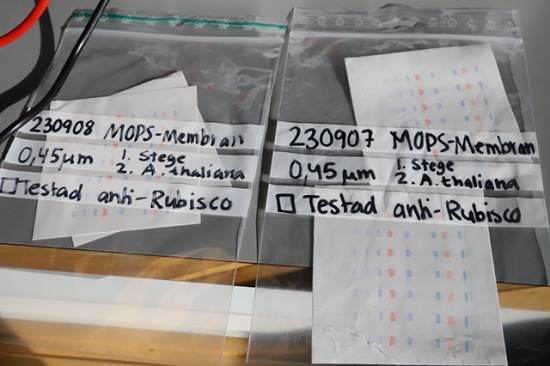 230908 MOPS-Membran
0,45µm 1. Stege
2. A. thaliana
Testad anti-Rubisco
230907 MOPS-Membran
0,45µm 1. Stege
2. A. thaliana
Testad anti-Rubisco